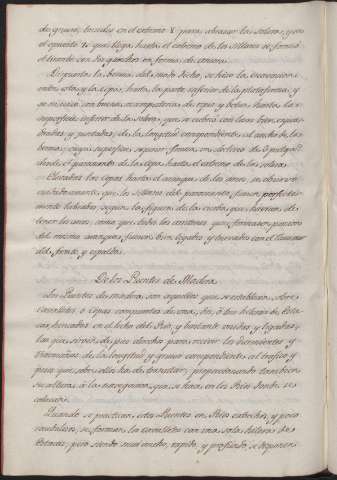 de grueso, bocados en el extremo X para abrazar la solera, y en
el opuesto Z que llega hasta el extremo de la sillería se formó
el tirante con dos ganchos en forma de ancora.
Dispuesta la berma del modo dicho, se hizo la excavacion
entre esta y la cepa, hasta la parte inferior de la plataforma, y
se macizó con buena mamposteria de ripio y betun, hasta la
superficie inferior de la solera, que se cubrió con losas bien, esqua-
dradas y sentadas, de la longitud correspondiente al ancho de las
bermas, cuya superficie superior forma un declivio de 6 pulgs.
desde el paramento de la cepa, hasta el extremo de las soleras.
Elevadas las cepas hasta el arranque de los arcos, se observó
cuidadosamente, que los sillares del paramento, fuesen perfecta-
mente labrados segun la figura de la curba, que havrian de
tener los arcos, como que todos los canteros que formasen porcion
del mismo arranque, fuesen bien ligados y travados con el llamar
del frente y espalda.
De los Puentes de Madera
Los Puentes de madera son aquellos que se establecen, sobre
cavalletes o cepas compuestas de una, dos, ó tres hileras de Esta-
cas, hincadas en el lecho del Rio, y bastante unidas y ligadas,
las que sirven de pies derechos para recivir los durmientes y
travesaños de la longitud y grueso correspondiente al trafico y
peso que sobre ellos ha de transitar; proporcionando tambien
su altura, á la navegacion que se hará, en los Rios donde se
colocan.
Quando se practican estos Puentes en Rios estrechos y poco
caudalosos, se forman los cavalletes con una sola hilera de
Estacas; pero siendo mui ancho, rapido y profundo, se disponen